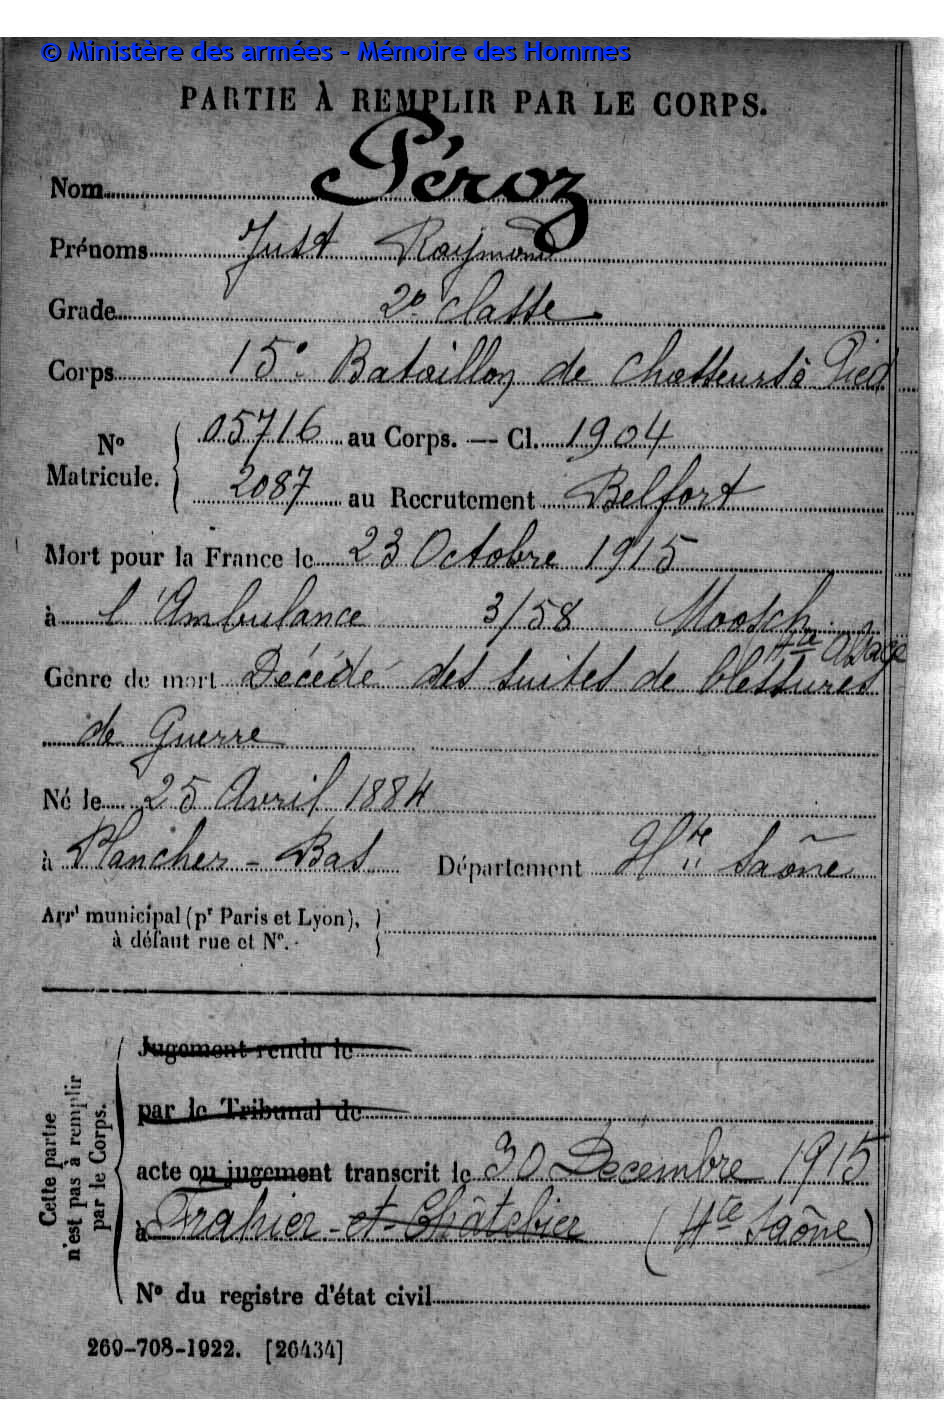 © Ministère des armées - Mémoire des Hommes
PARTIE À REMPLIR PAR LE CORPS.
Nom Péroz
Prénoms Just Raymond
Grade 2e classe
Corps 15e Bataillon de Chasseurs à Pied
No Matricule. 05716 au Corps. — Cl. 1904
2087 au Recrutement Belfort
Mort pour la France le 23 Octobre 1915
à l'Ambulance 3/58 Moosch
Hte Alsace
Genre de mort Décédé des suites de blessures
de Guerre
Né le 25 Avril 1884
à Plancher-Bas Département Hte Saône
Arrt municipal (pr Paris et Lyon),
à défaut rue et No.
Cette partie n'est pas à remplir par le Corps.
Jugement rendu le
par le Tribunal de
acte ou jugement transcrit le 30 Décembre 1915
à Frahier-et-Châtebier (Hte Saône)
No du registre d'état civil
269-708-1922. [26434]